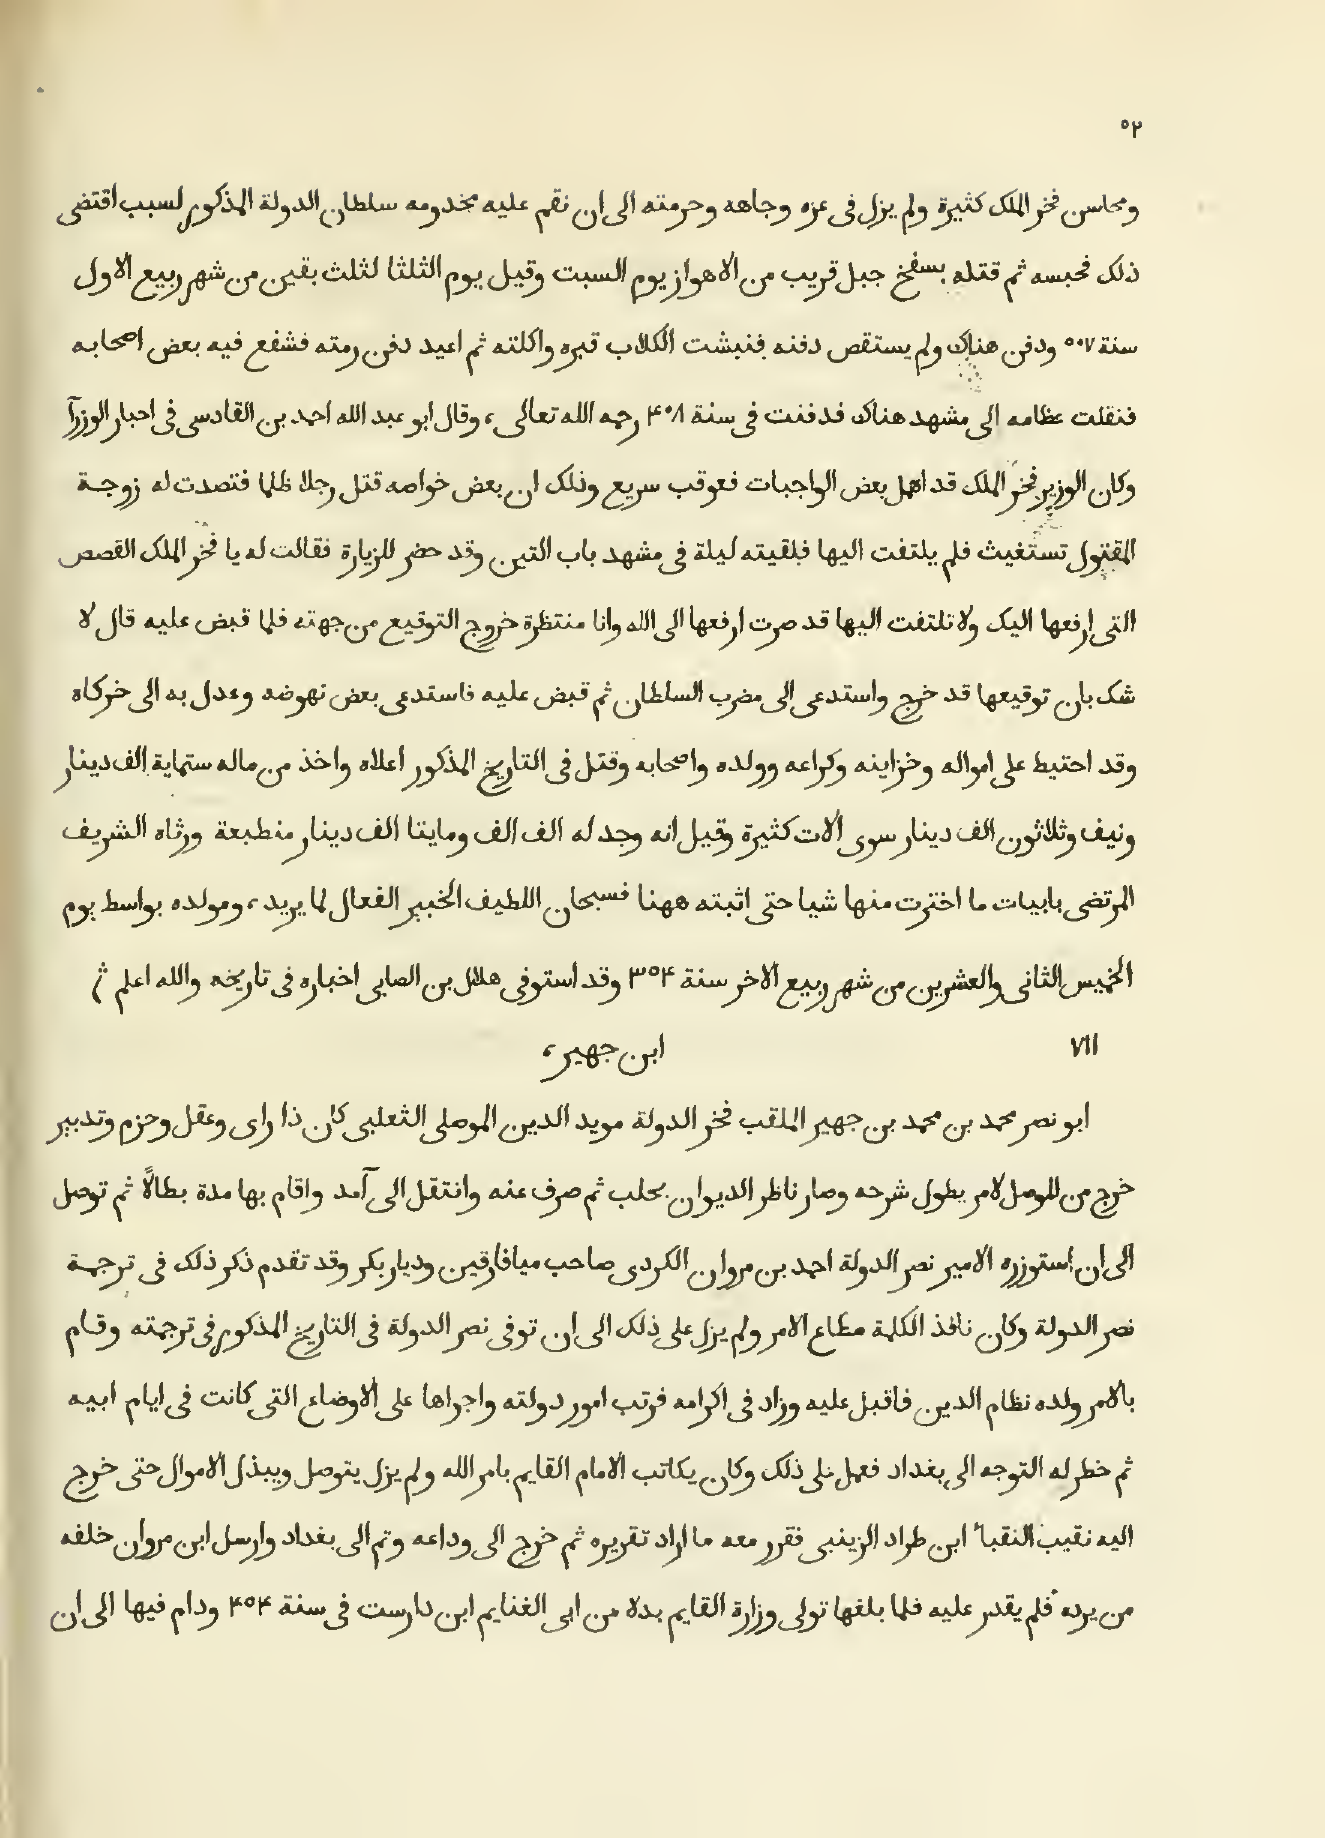 ٥٢
ومحاسن فخر الملك كثيرة ولم يزل في عزه وجاهه وحرمته الى ان نقم عليه مخدومه سلطان الدولة المذكور لسبب اقتضى
ذلك فحبسه ثم قتله بسفح جبل قريب من الاهواز يوم السبت وقيل يوم الثلثا لثلث بقين من شهر ربيع الاول
سنة ٥٠٧ ودفن هناك ولم يستقص دفنه فنبشت الكلاب قبره واكلته ثم اعيد دفن رمته فشفع فيه بعض اصحابه
فنقلت عظامه الى مشهد هناك فدفنت في سنة ۴٠٨ رحمه الله تعالى، وقال ابو عبد الله احمد بن القادسى فى اخبار الوزرآ
وكان الوزير فخر الملك قد اهمل بعض الواجبات فعوقب سريع وذلك ان بعض خواصه قتل رجلا ظلما فتصدت له زوجة
المقتول تستغيث فلم يلتفت اليها فلقيته ليلة فى مشهد باب التين وقد حضر للزيارة فقالت له يا فخر الملك القصص
التى ارفعها اليك ولا تلتفت اليها قد صرت ارفعها الى الله وانا منتظرة خروج التوقيع من جهته فلما قبض عليه قال لا
شك بان توقيعها قد خرج واستدعى الى مضرب السلطان ثم قبض عليه فاستدعى بعض نهوضه وعدل به الى خركاه
وقد احتيط على امواله وخزاينه وكراعه وولده واصحابه وقتل فى التاريخ المذكور اعلاه واخذ من ماله ستماية الف دينار
ونيف وثلاثون الف دينار سوى الات كثيرة وقيل انه وجد له الف الف ومايتا الف دينار منطبعة ورثاه الشريف
المرتضى بابيات ما اخترت منها شيا حتى اثبته ههنا فسبحان اللطيف الخبير الفعال لما يريد، ومولده بواسط يوم
الخميس الثانى والعشرين من شهر ربيع الاخر سنة ٣٥۴ وقد استوفى هلال بن الصابى اخباره فى تاريخه والله اعلم ثم
٧١١ ابن جهير،
ابو نصر محمد بن محمد بن جهير الملقب فخر الدولة مويد الدين الموصلى الثعلبى كان ذا راى وعقل وحزم وتدبير
خرج من الموصل لامر يطول شرحه وصار ناظر الديوان بحلب ثم صرف عنه وانتقل الى آمد واقام بها مدة بطالًا ثم توصل
الى ان استوزره الامير نصر الدولة احمد بن مروان الكردى صاحب ميافارقين وديار بكر وقد تقدم ذكر ذلك فى ترجمة
نصر الدولة وكان نافذ الكلمة مطاع الامر ولم يزل على ذلك الى ان توفى نصر الدولة فى التاريخ المذكور فى ترجمته وقام
بالامر ولده نظام الدين فاقبل عليه وزاد فى اكرامه فرتب امور دولته واجراها على الاوضاع التى كانت فى ايام ابيه
ثم خطر له التوجه الى بغداد فعمل على ذلك وكان يكاتب الامام القايم بامر الله ولم يزل يتوصل ويبذل الاموال حتى خرج
اليه نقيب النقبا ابن طراد الزينبى فقرر معه ما اراد تقريره ثم خرج الى وداعه وتم الى بغداد وارسل ابن مروان خلفه
من يرده فلم يقدر عليه فلما بلغها تولى وزارة القايم بدلا من ابى الغنايم ابن دارست فى سنة ۴٥۴ ودام فيها الى ان